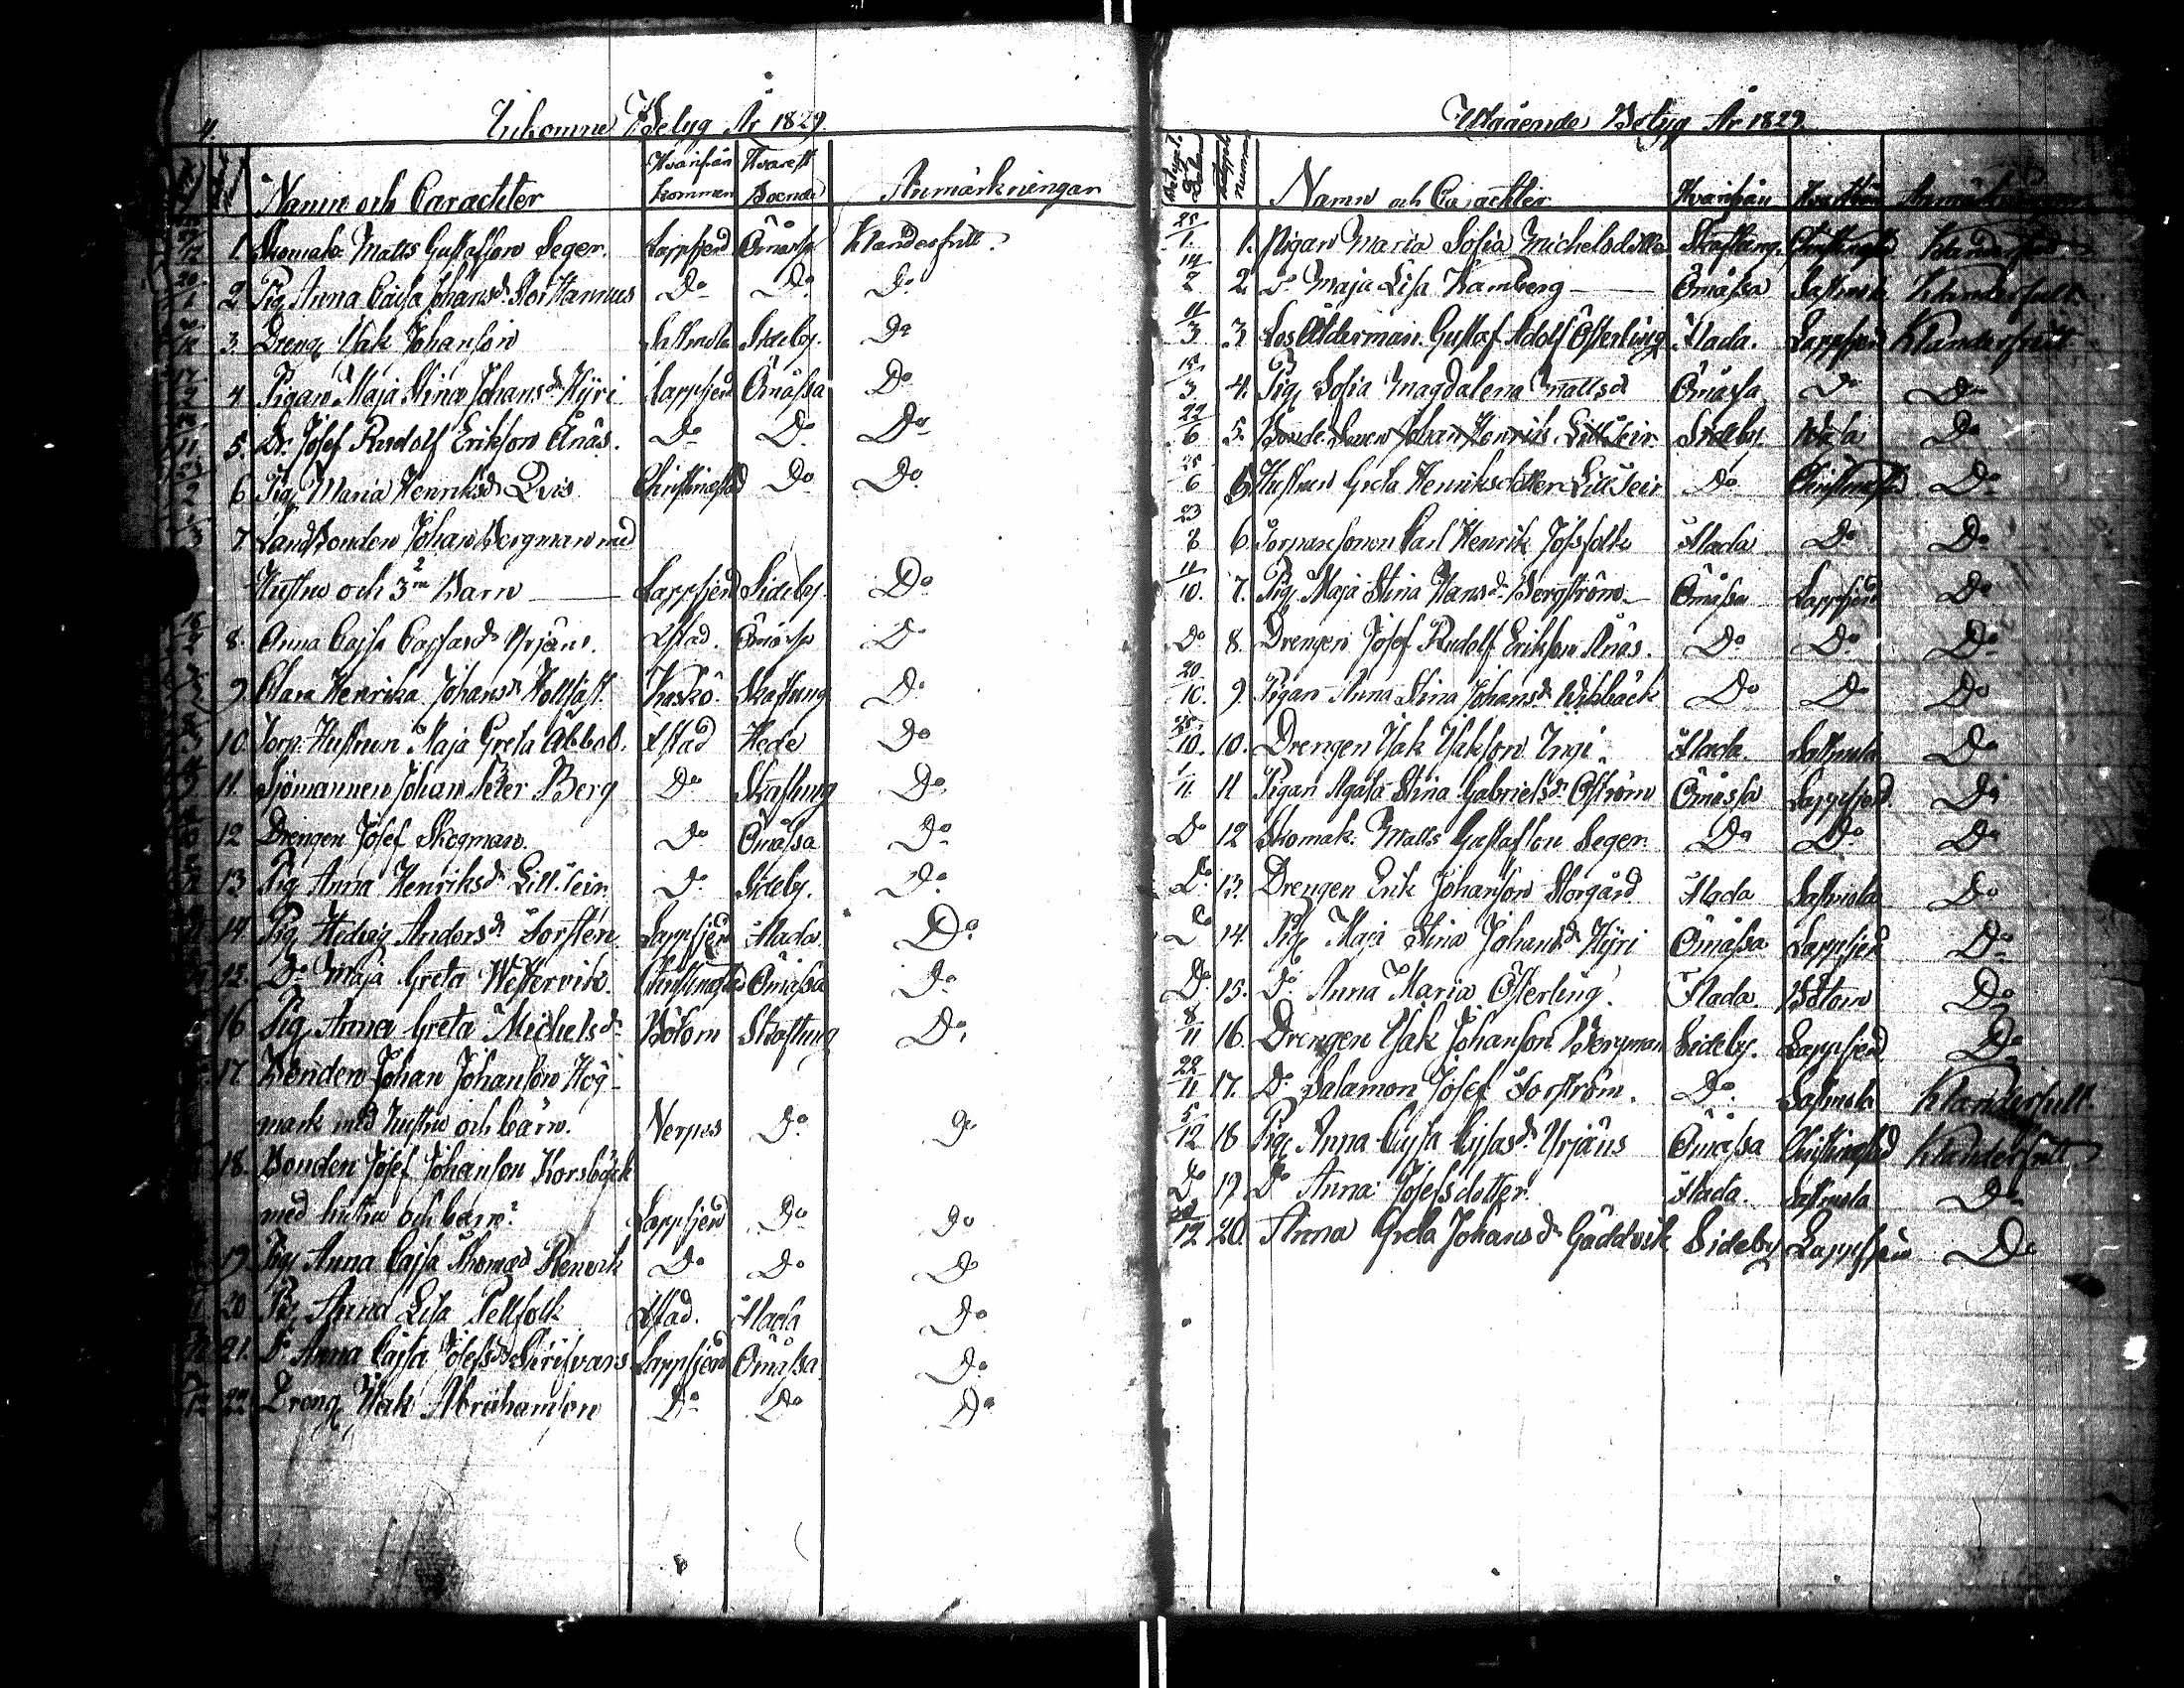 4.
Inkomne Betyg År 1829
Namn och Carachter Hvarifrån kommen Hvarest Boende Anmärkningar
1. Skomak. Matts Gustafson Seger. Lappfjerd Ömåssa Klanderfritt.
2 Pig. Anna Cajsa Johansd. Do Do Do
3. Dreng Isak Johanson Sastmola Sideby. Do
4 Pigan Maja Stina Johansd. Hyri Lappfjerd Ömåssa Do
5. Dr. Josef Rudolf Erikson Änäs. Do Do Do
6 Pig. Maria Henriksd. Qvis Christinestad Do Do
7. Landbonden Johan Bergman med
Hustru och 3 2ne Barn — Lappfjerd Sideby. Do
8. Anna Cajsa Cajsasd. Yrjäns. Xstad. Ömåssa Do
9. Clara Henrika Johansd. Kaskö. Skaftung Do
10 Torp. Hustrun Maja Greta Åbbod. Xstad Hede Do
11. Sjömannen Johan Peter Berg Do Skaftung Do
12 Drengen Josef Skogman. Do Ömåssa Do
13 Pig. Anna Henriksd. Lill Teir. Do Sideby. Do
14 Pig. Hedvig Andersd. Forstén. Lappfjerd Flada Do
15. Do Maja Greta Westervik. Christinestad Ömåssa Do
16 Pig. Anna Greta Michelsd. Bötom Skaftung Do
17. Bonden Johan Johanson Hög-
mark med hustru och barn. Nerpes Do Do
18. Bonden Josef Johanson Korsbäck
med hustru och barn. Lappfjerd Do Do
19 Pig. Anna Cajsa Thomasd. Renvik Do Do Do
20 Pig. Anna Lisa Pellfolk Xstad. Flada Do
21. Do Anna Cajsa Josefsd. Lappfjerd Ömåssa Do
22 Dreng Isak Abrahamson Do Do Do
Utgående Betyg År 1829.
Betygets Datum Betygets Nummer Namn och Carachter Hvarifrån Hvarthän Anmärkningar
25/1. 1. Pigan Maria Sofia Michelsdotter Skaftung. Christinestad Klanderfritt
14/2 2. Do Maja Lisa Hamberg — Ömåssa Sastmola Klanderfritt
11/3 3 Ålderman Gustaf Adolf Österling Flada. Lappfjerd Klanderfritt
15/3. 4. Pig. Sofia Magdalena Mattsd. Ömåssa Do Do
22/6 5. Bonde Sonen Johan Henrik Lill Teir Sideby Wasa Do
25/6 5 Hustrun Greta Henriksdotter Lill Teir Do Christinestad Do
23/8 6 Torparesonen Carl Henrik Josfolk Flada Do Do
11/10. 7. Pig. Maja Stina Hansd. Bergström — Ömåssa Lappfjerd Do
Do 8. Drengen Josef Rudolf Erikson Änäs. Do Do Do
20/10. 9. Pigan Anna Stina Johansd. Wikbäck Do Do Do
25/10. 10. Drengen Isak Isakson Ingi. Flada. Sastmola Do
1/11. 11 Pigan Agata Stina Gabrielsd. Öström Ömåssa Lappfjerd Do
Do 12 Skomak. Matts Gustafson Seger. Do Do Do
Do 13. Drengen Erik Johanson Storgård Flada Sastmola Do
Do 14. Pig. Maja Stina Johansd. Hyri Ömåssa Lappfjerd Do
Do 15. Do Anna Maria Österling. Flada Bötom Do
8/11 16. Drengen Isak Johanson Bergman Sideby. Lappfjerd Do
22/11 17. Do Salamon Josef Forström. Do Sastmola Klanderfritt.
5/12 18 Pig. Anna Cajsa Cajsasd. Yrjäns Ömåssa Christinestad Klanderfritt
Do 19. Do Anna Josefsdotter. Flada. Sastmola Do
/12 20. Anna Greta Johansd. Gäddvik Sideby Lappfjerd Do